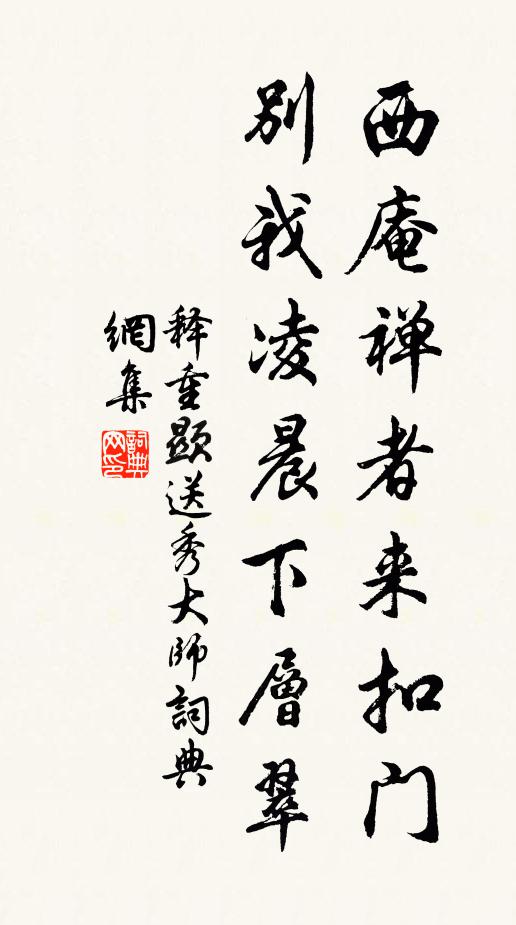 西庵禅者来扣门
别我凌晨下層翠
释重顯送秀大師詞典
網集
詞典網印